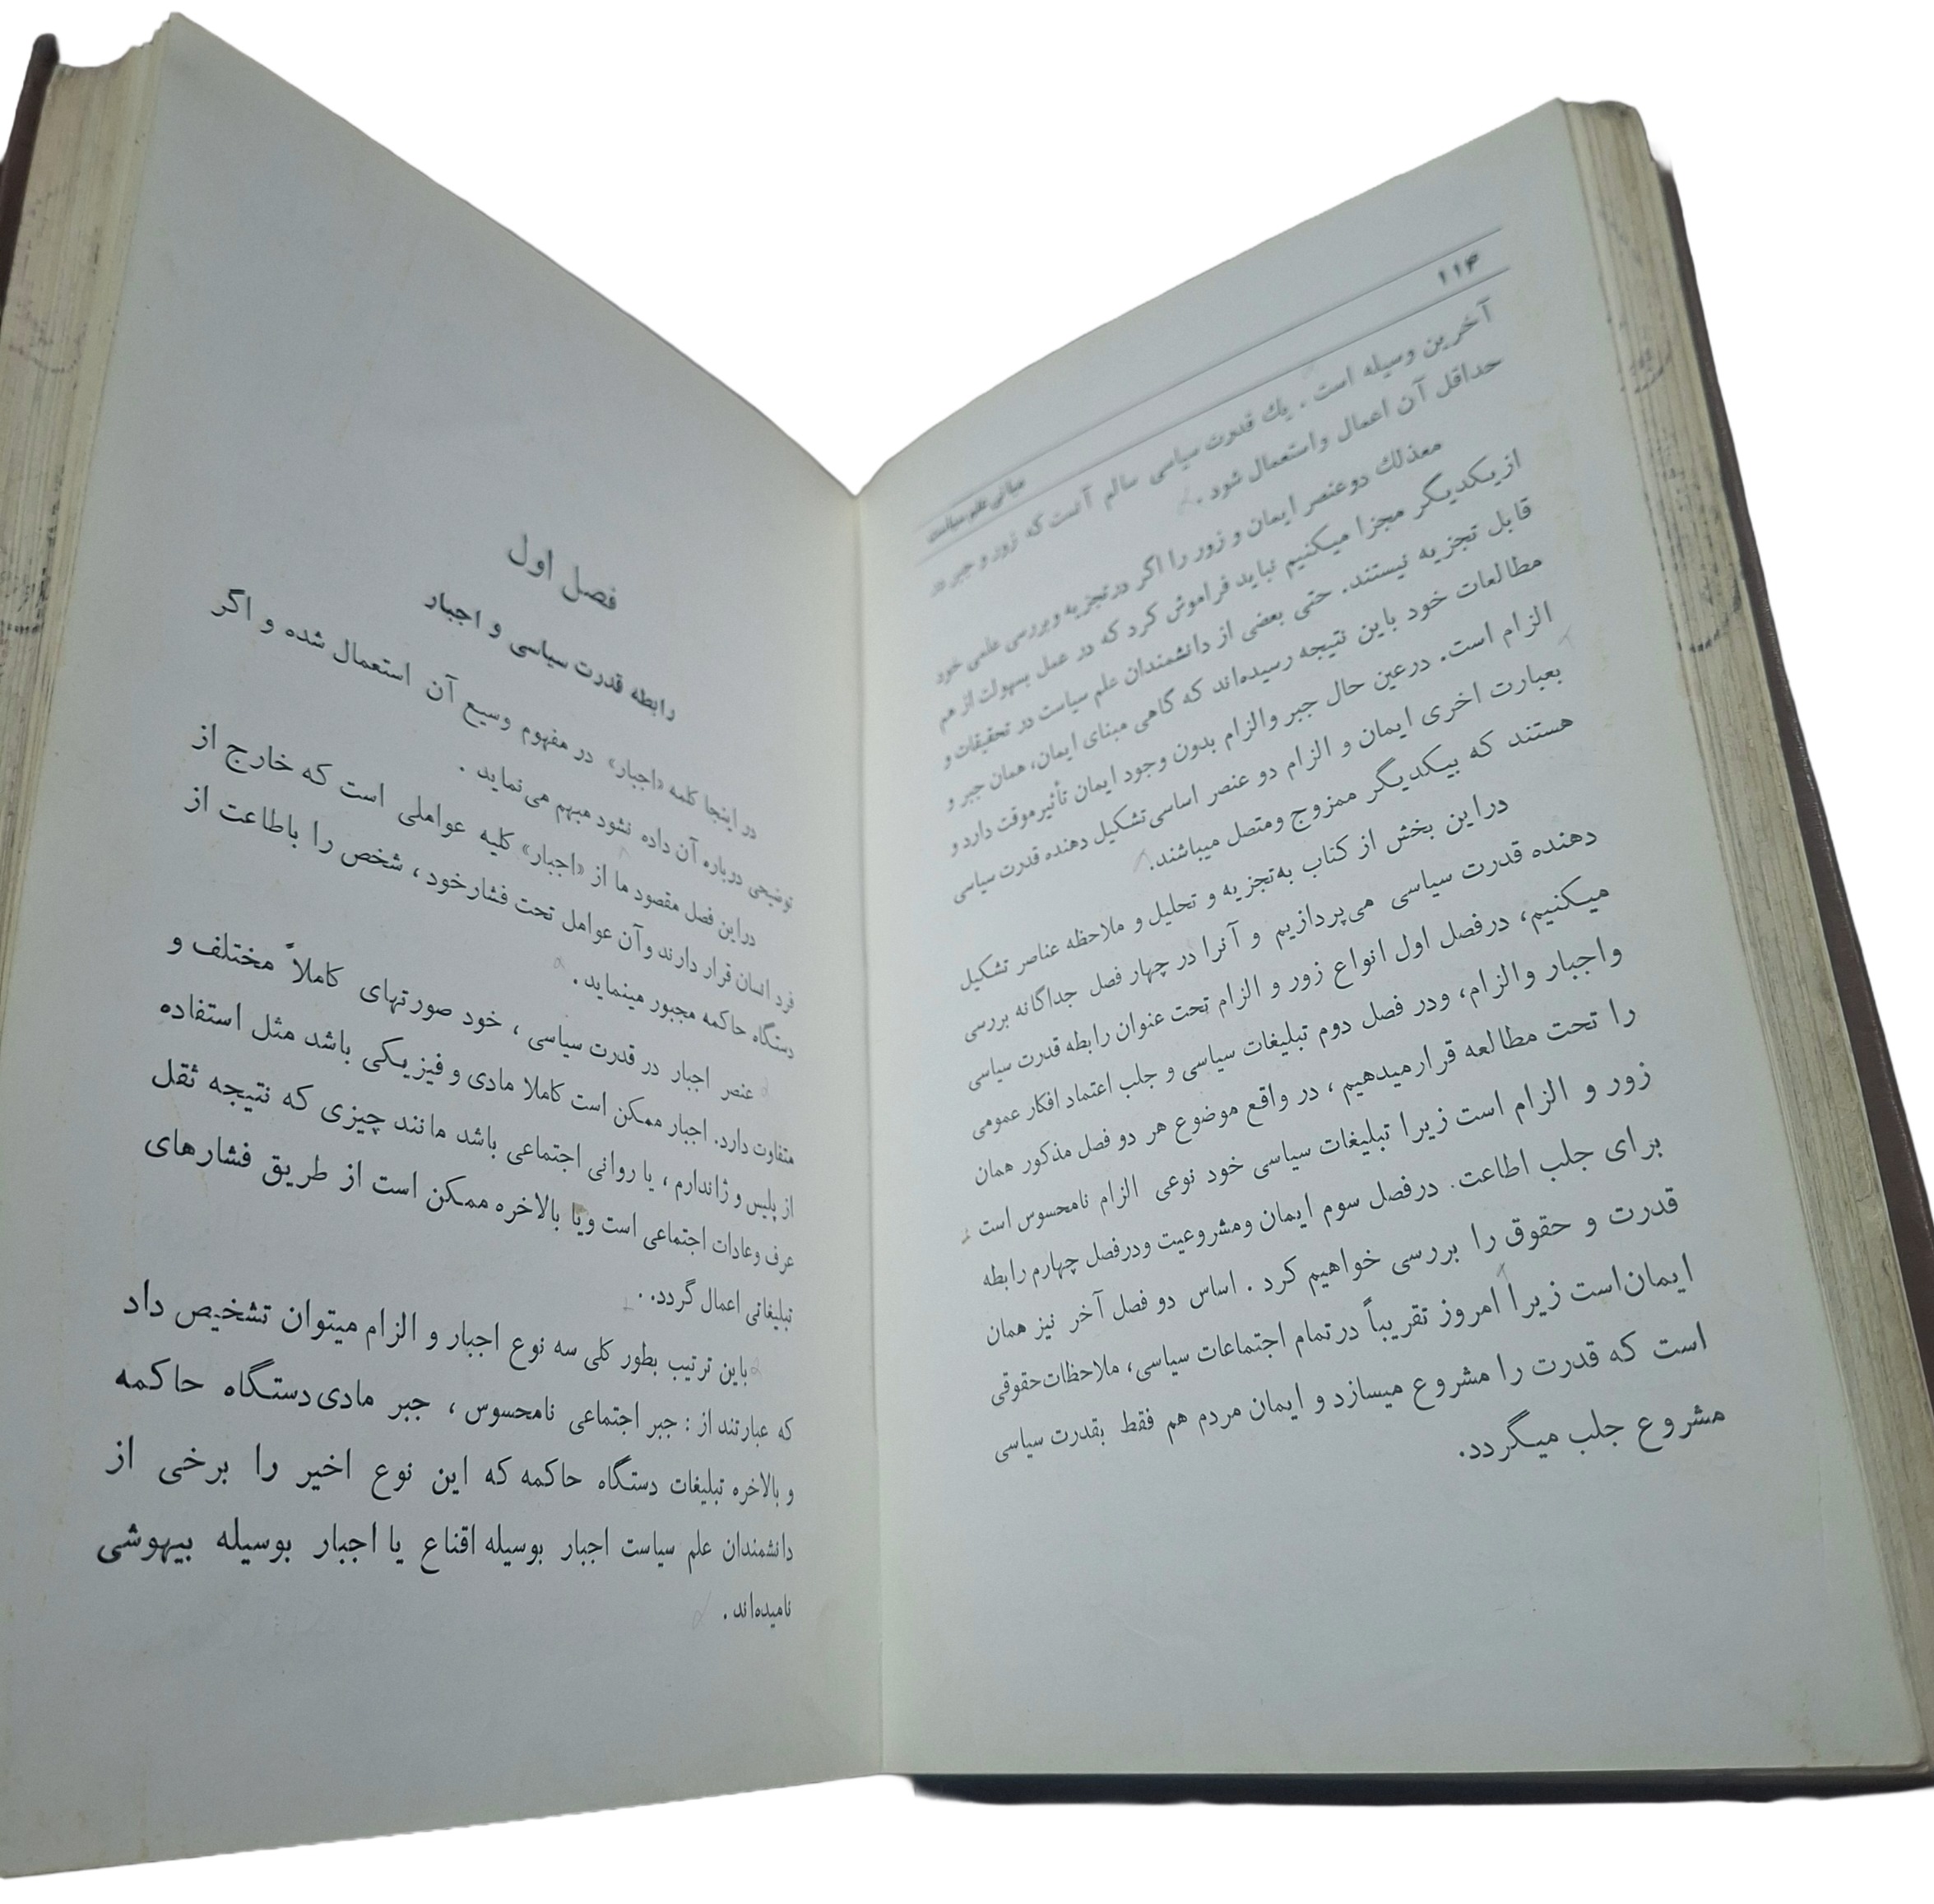 ۱۱۴
مبانی علم سیاست
آخرین وسیله است . یك قدرت سیاسی سالم آنست که زور و جبر در
حداقل آن اعمال واستعمال شود .
معذلك دوعنصر ایمان و زور را اگر درتجزیه وبررسی علمی خود
ازیکدیگر مجزا میکنیم نباید فراموش کرد که در عمل بسهولت از هم
قابل تجزیه نیستند. حتی بعضی از دانشمندان علم سیاست در تحقیقات و
مطالعات خود باین نتیجه رسیده‌اند که گاهی مبنای ایمان، همان جبر و
الزام است. درعین حال جبر والزام بدون وجود ایمان تأثیرموقت دارد و
بعبارت اخری ایمان و الزام دو عنصر اساسی تشکیل دهنده قدرت سیاسی
هستند که بیکدیگر ممزوج ومتصل میباشند.
دراین بخش از کتاب به‌تجزیه و تحلیل و ملاحظه عناصر تشکیل
دهنده قدرت سیاسی می‌پردازیم و آنرا در چهار فصل جداگانه بررسی
میکنیم، درفصل اول انواع زور و الزام تحت عنوان رابطه قدرت سیاسی
واجبار والزام، ودر فصل دوم تبلیغات سیاسی و جلب اعتماد افکار عمومی
را تحت مطالعه قرارمیدهیم ، در واقع موضوع هر دو فصل مذکور همان
زور و الزام است زیرا تبلیغات سیاسی خود نوعی الزام نامحسوس است
برای جلب اطاعت. درفصل سوم ایمان ومشروعیت ودرفصل چهارم رابطه
قدرت و حقوق را بررسی خواهیم کرد . اساس دو فصل آخر نیز همان
ایمان‌است زیرا امروز تقریباً درتمام اجتماعات سیاسی، ملاحظات‌حقوقی
است که قدرت را مشروع میسازد و ایمان مردم هم فقط بقدرت سیاسی
مشروع جلب میگردد.
فصل اول
رابطه قدرت سیاسی و اجبار
در اینجا کلمه «اجبار» در مفهوم وسیع آن استعمال شده و اگر
توضیحی درباره آن داده نشود مبهم می‌نماید .
دراین فصل مقصود ما از «اجبار» کلیه عواملی است که خارج از
فرد انسان قرار دارند وآن عوامل تحت فشارخود ، شخص را باطاعت از
دستگاه حاکمه مجبور مینماید .
عنصر اجبار در قدرت سیاسی ، خود صورتهای کاملاً مختلف و
متفاوت دارد. اجبار ممکن است کاملا مادی و فیزیکی باشد مثل استفاده
از پلیس و ژاندارم ، یا روانی اجتماعی باشد مانند چیزی که نتیجه ثقل
عرف وعادات اجتماعی است ویا بالاخره ممکن است از طریق فشارهای
تبلیغاتی اعمال گردد. .
باین ترتیب بطور کلی سه نوع اجبار و الزام میتوان تشخیص داد
که عبارتند از : جبر اجتماعی نامحسوس ، جبر مادی دستگاه حاکمه
و بالاخره تبلیغات دستگاه حاکمه که این نوع اخیر را برخی از
دانشمندان علم سیاست اجبار بوسیله اقناع یا اجبار بوسیله بیهوشی
نامیده‌اند .